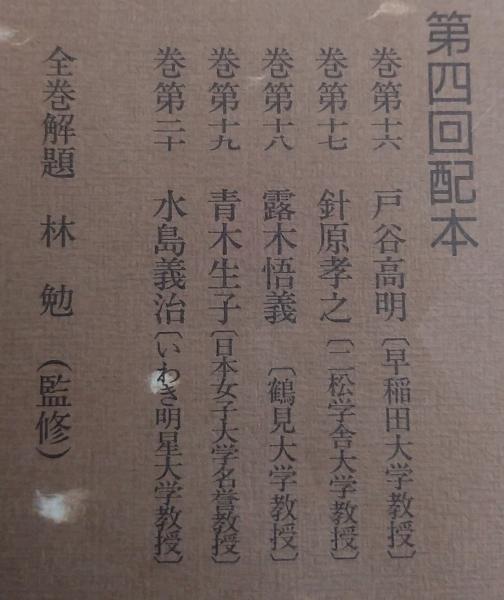 第四回配本
巻第十六 戸谷高明〔早稲田大学教授〕
巻第十七 針原孝之〔二松学舎大学教授〕
巻第十八 露木悟義〔鶴見大学教授〕
巻第十九 青木生子〔日本女子大学名誉教授〕
巻第二十 水島義治〔いわき明星大学教授〕
全巻解題 林 勉 (監修)